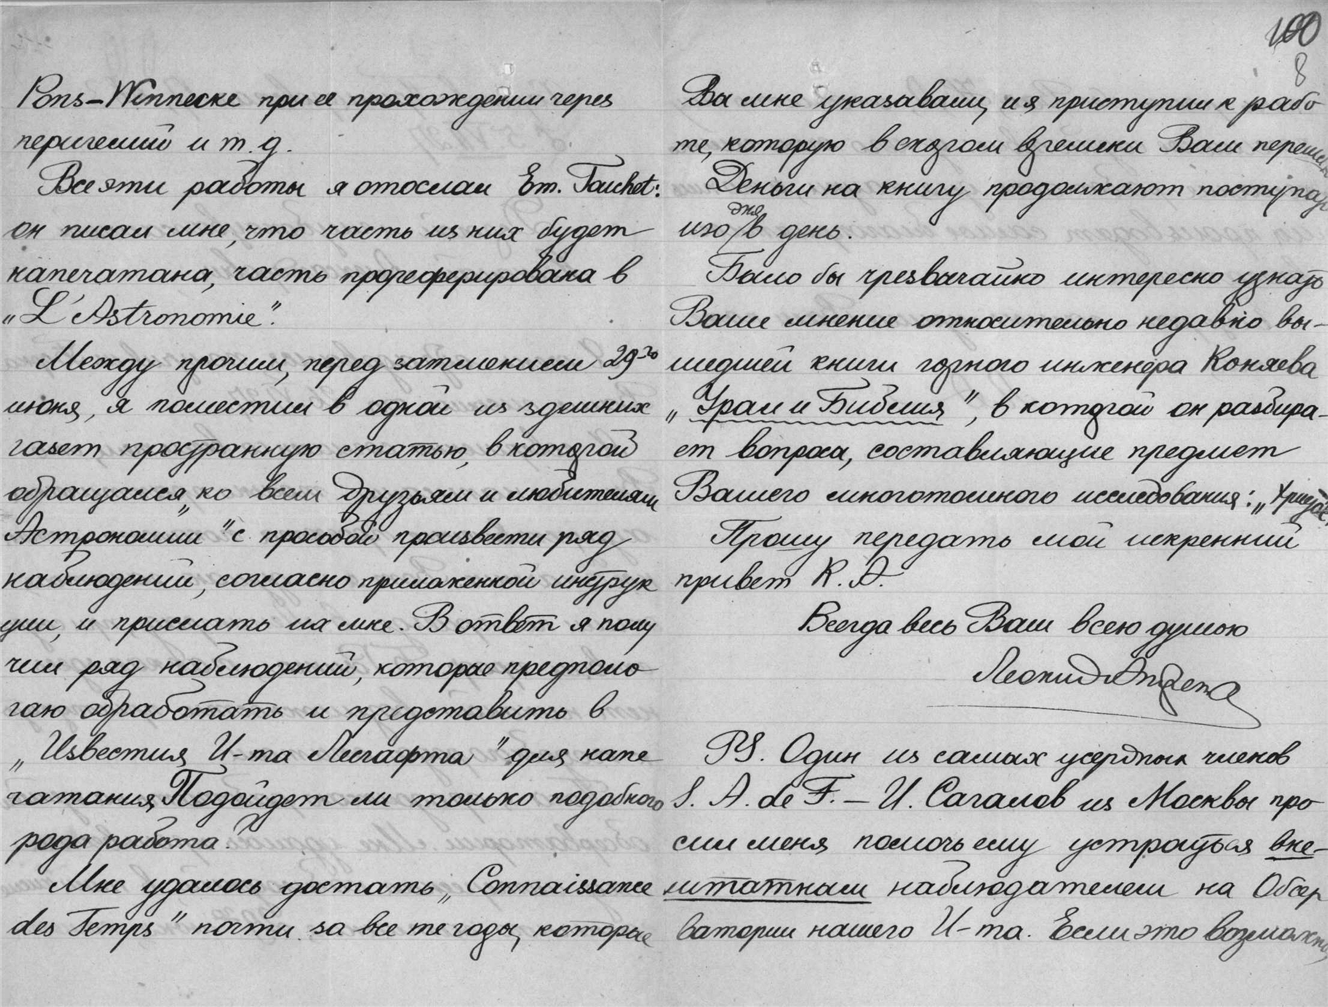 Pons–Winnecke при ее прохождении через
перигелий и т. д.
Все эти работы я отослал Em. Touchet:
он писал мне, что часть из них будет
напечатана, часть прореферирована в
„L'Astronomie".
Между прочим, перед затмением 29-го
июня, я поместил в одной из здешних
газет пространную статью, в которой
обращался „ко всем друзьям и любителям
Астрономии" с просьбой произвести ряд
наблюдений, согласно приложенной инструк
ции, и прислать их мне. В ответ я полу
чил ряд наблюдений, которые предпола
гаю обработать и представить в
„Известия И-та Лесгафта" для напе
чатания. Подойдет ли только подобного
рода работа?
Мне удалось достать „Connaissance
des Temps" почти за все те годы, которые
100
8
Вы мне указывали, и я приступил к рабо
те, которую в скором времени Вам
Деньги на книгу продолжают поступать
изо дня в день.
Было бы чрезвычайно интересно узнать
Ваше мнение относительно недавно вы–
шедшей книги горного инженера Коняева
„Урал и Библия", в которой он разбира–
ет вопросы, составляющие предмет
Вашего многотомного исследования: „Христос".
Прошу передать мой искренний
привет К. А.
Всегда весь Ваш всею душою
Леонид Андрена
PS. Один из самых усердных членов
S. A. de F. – И. Сагалов из Москвы про
сил меня помочь ему устроиться вне–
штатным наблюдателем на Обсер
ватории нашего И-та. Если это возможно,